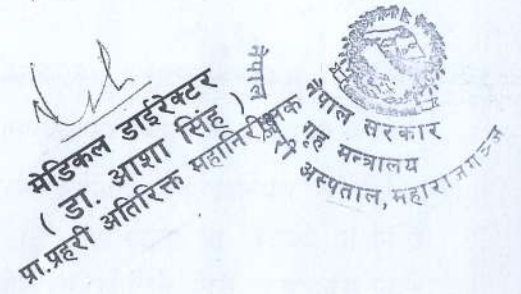 मेडिकल डाईरेक्टर
( डा. आशा सिंह )
प्रा.प्रहरी अतिरिक्त महानिरीक्षक
नेपाल सरकार
गृह मन्त्रालय
नेपाल प्रहरी अस्पताल, महाराजगञ्ज